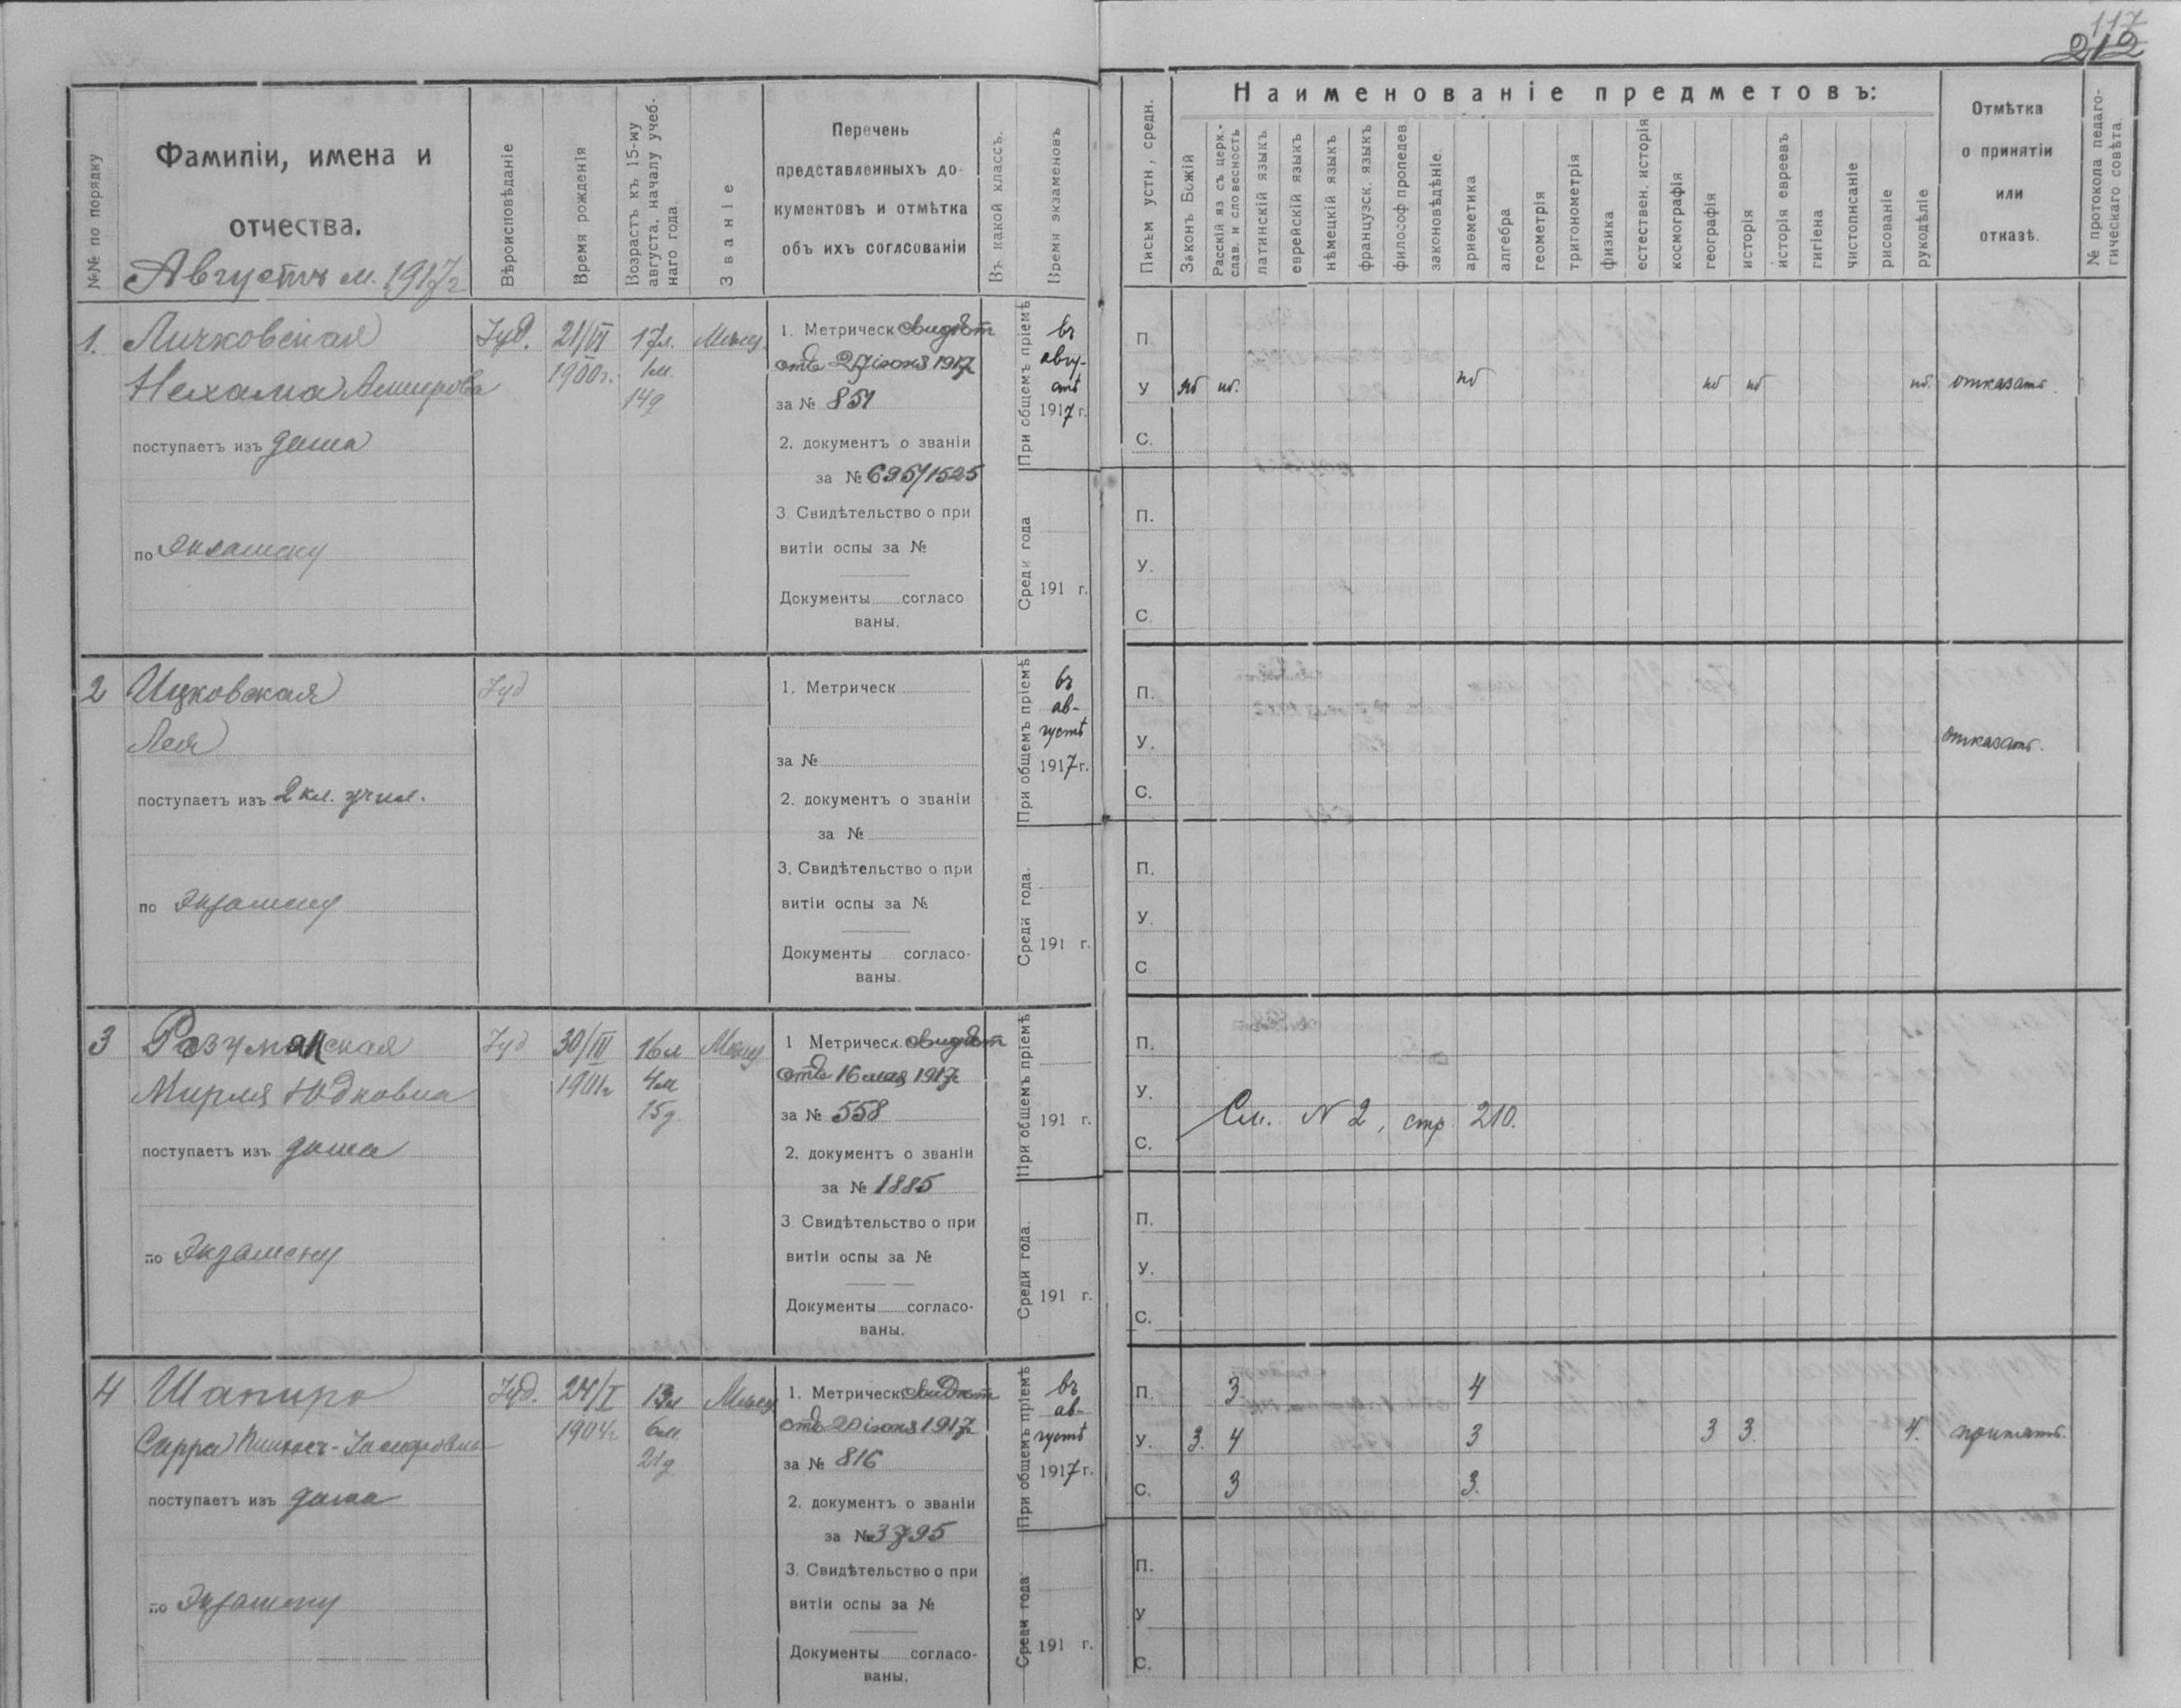 117
212
№№ по порядку
Фамиліи, имена и
отчества.
Августъ м. 1917 г
Вѣроисповѣданіе
Время рожденія
Возрастъ къ 15-му
августа, началу учеб-
наго года.
Званіе
Перечень
представленныхъ до-
кументовъ и отмѣтка
объ ихъ соглсованіи
Въ какой классъ.
Время экзаменовъ
Письм устн, средн.
Наименованіе предметовъ:
Законъ Божій
Расскій яз съ церк.-
слав. и словесность
латинскій языкъ
еврейскій языкъ
нѣмецкій языкъ
французск. языкъ
философ пропедев
законовѣдѣніе.
ариѳметика
алгебра
геометрія
тригонометрія
физика
естествен. исторія
космографія
географія
исторія
исторія евреевъ
гигіена
чистописаніе
рисованіе
рукодѣліе
Отмѣтка
о принятіи
или
отказѣ.
№ протокола педаго-
гическаго совѣта.
1. Личковская
Нехама
поступаетъ изъ дома
по экзамену
Іуд.
21/VI
1900 г.
17 л.
1 м.
14 д
Мѣщ.
1. Метрическ свидѣт
отъ 27 іюня 1917 г
за № 851
2. документъ о званіи
за № 695/1525
3. Свидѣтельство о при
витіи оспы за №
Документы согласо
ваны.
При общемъ пріемѣ
въ
авгу-
стѣ
1917 г.
Среди года
191 г.
П
У нб нб. нб нб нб нб. отказать.
С.
П.
У.
С.
2 Ицковская
Лея
поступаетъ изъ 2 кл. учил.
по экзамену
Іуд
1. Метрическ
за №
2. документъ о званіи
за №
3. Свидѣтельство о при
витіи оспы за №
Документы согласо-
ваны.
При общемъ пріемѣ
въ
ав-
густѣ
1917 г.
Среди года.
191 г.
П.
У. отказать.
С.
П.
У.
С
3 Разуманская
Мирля Юдковна
поступаетъ изъ дома
по экзамену
Іуд
30/III
1901 г
16 л
4 м
15 д.
Мѣщ
1 Метрическ. свидѣт
отъ 16 мая 1917 г
за № 558
2. документъ о званіи
за № 1885
3. Свидѣтельство о при
витіи оспы за №
Документы согласо-
ваны.
При общемъ пріемѣ
191 г.
Среди года.
191 г.
П.
У.
С.
См. N 2, стр. 210.
П.
У.
С.
4 Шапиро
Сарра
поступаетъ изъ дома
по экзамену
Іуд.
24/I
1904 г
13 л
6 м.
21 д
Мѣщ
1. Метрическ свидѣт
отъ 20 іюня 1917 г
за № 816
2. документъ о званіи
за № 3795
3. Свидѣтельство о при
витіи оспы за №
Документы согласо-
ваны.
При общемъ пріемѣ
въ
ав-
густѣ
1917 г.
Среди года
191 г.
П. 3 4
У. 3. 4 3 3 3. 4. принять.
С. 3 3.
П.
У
С.